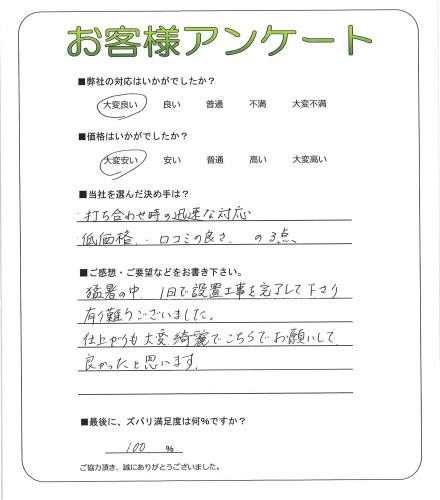 お客様アンケート
■弊社の対応はいかがでしたか？
大変良い 良い 普通 不満 大変不満
■価格はいかがでしたか？
大変安い 安い 普通 高い 大変高い
■当社を選んだ決め手は？
・打ち合わせ時の迅速な対応
低価格、・口コミの良さ、の3点、
■ご感想・ご要望などをお書き下さい。
猛暑の中、1日で設置工事を完了して下さり
有り難うございました。
仕上がりも大変綺麗でこちらでお願いして
良かったと思います。
■最後に、ズバリ満足度は何%ですか？
100 %
ご協力頂き、誠にありがとうございました。